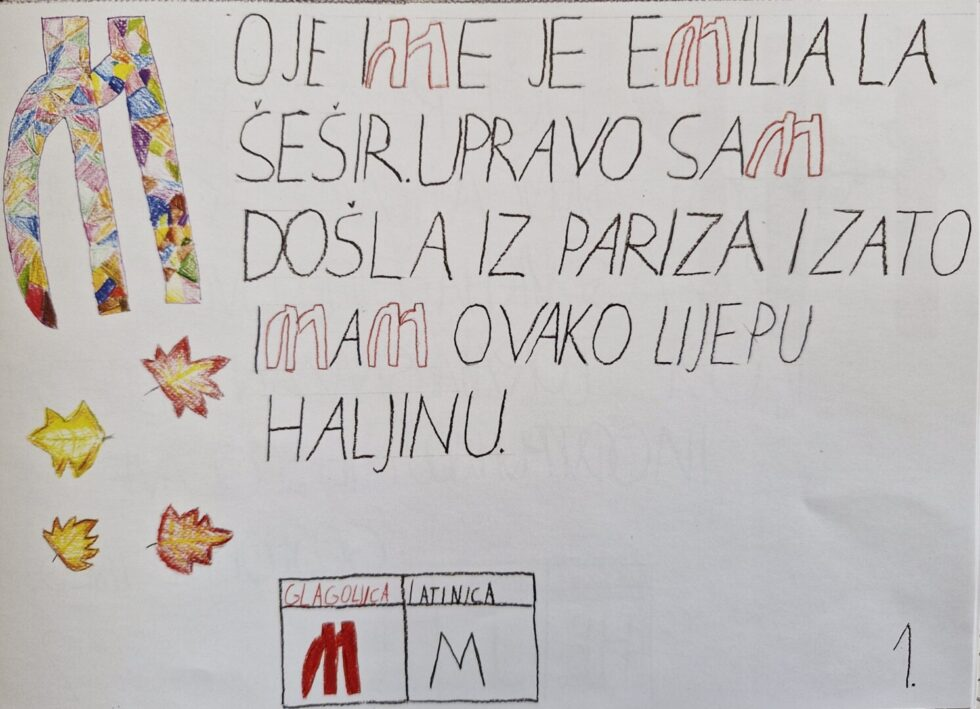 ⰮOJE IⰮE JE EⰮILIA LA
ŠEŠIR. UPRAVO SAⰮ
DOŠLA IZ PARIZA I ZATO
IⰮAⰮ OVAKO LIJEPU
HALJINU.
GLAGOLJICA LATINICA
Ⱞ M
1.